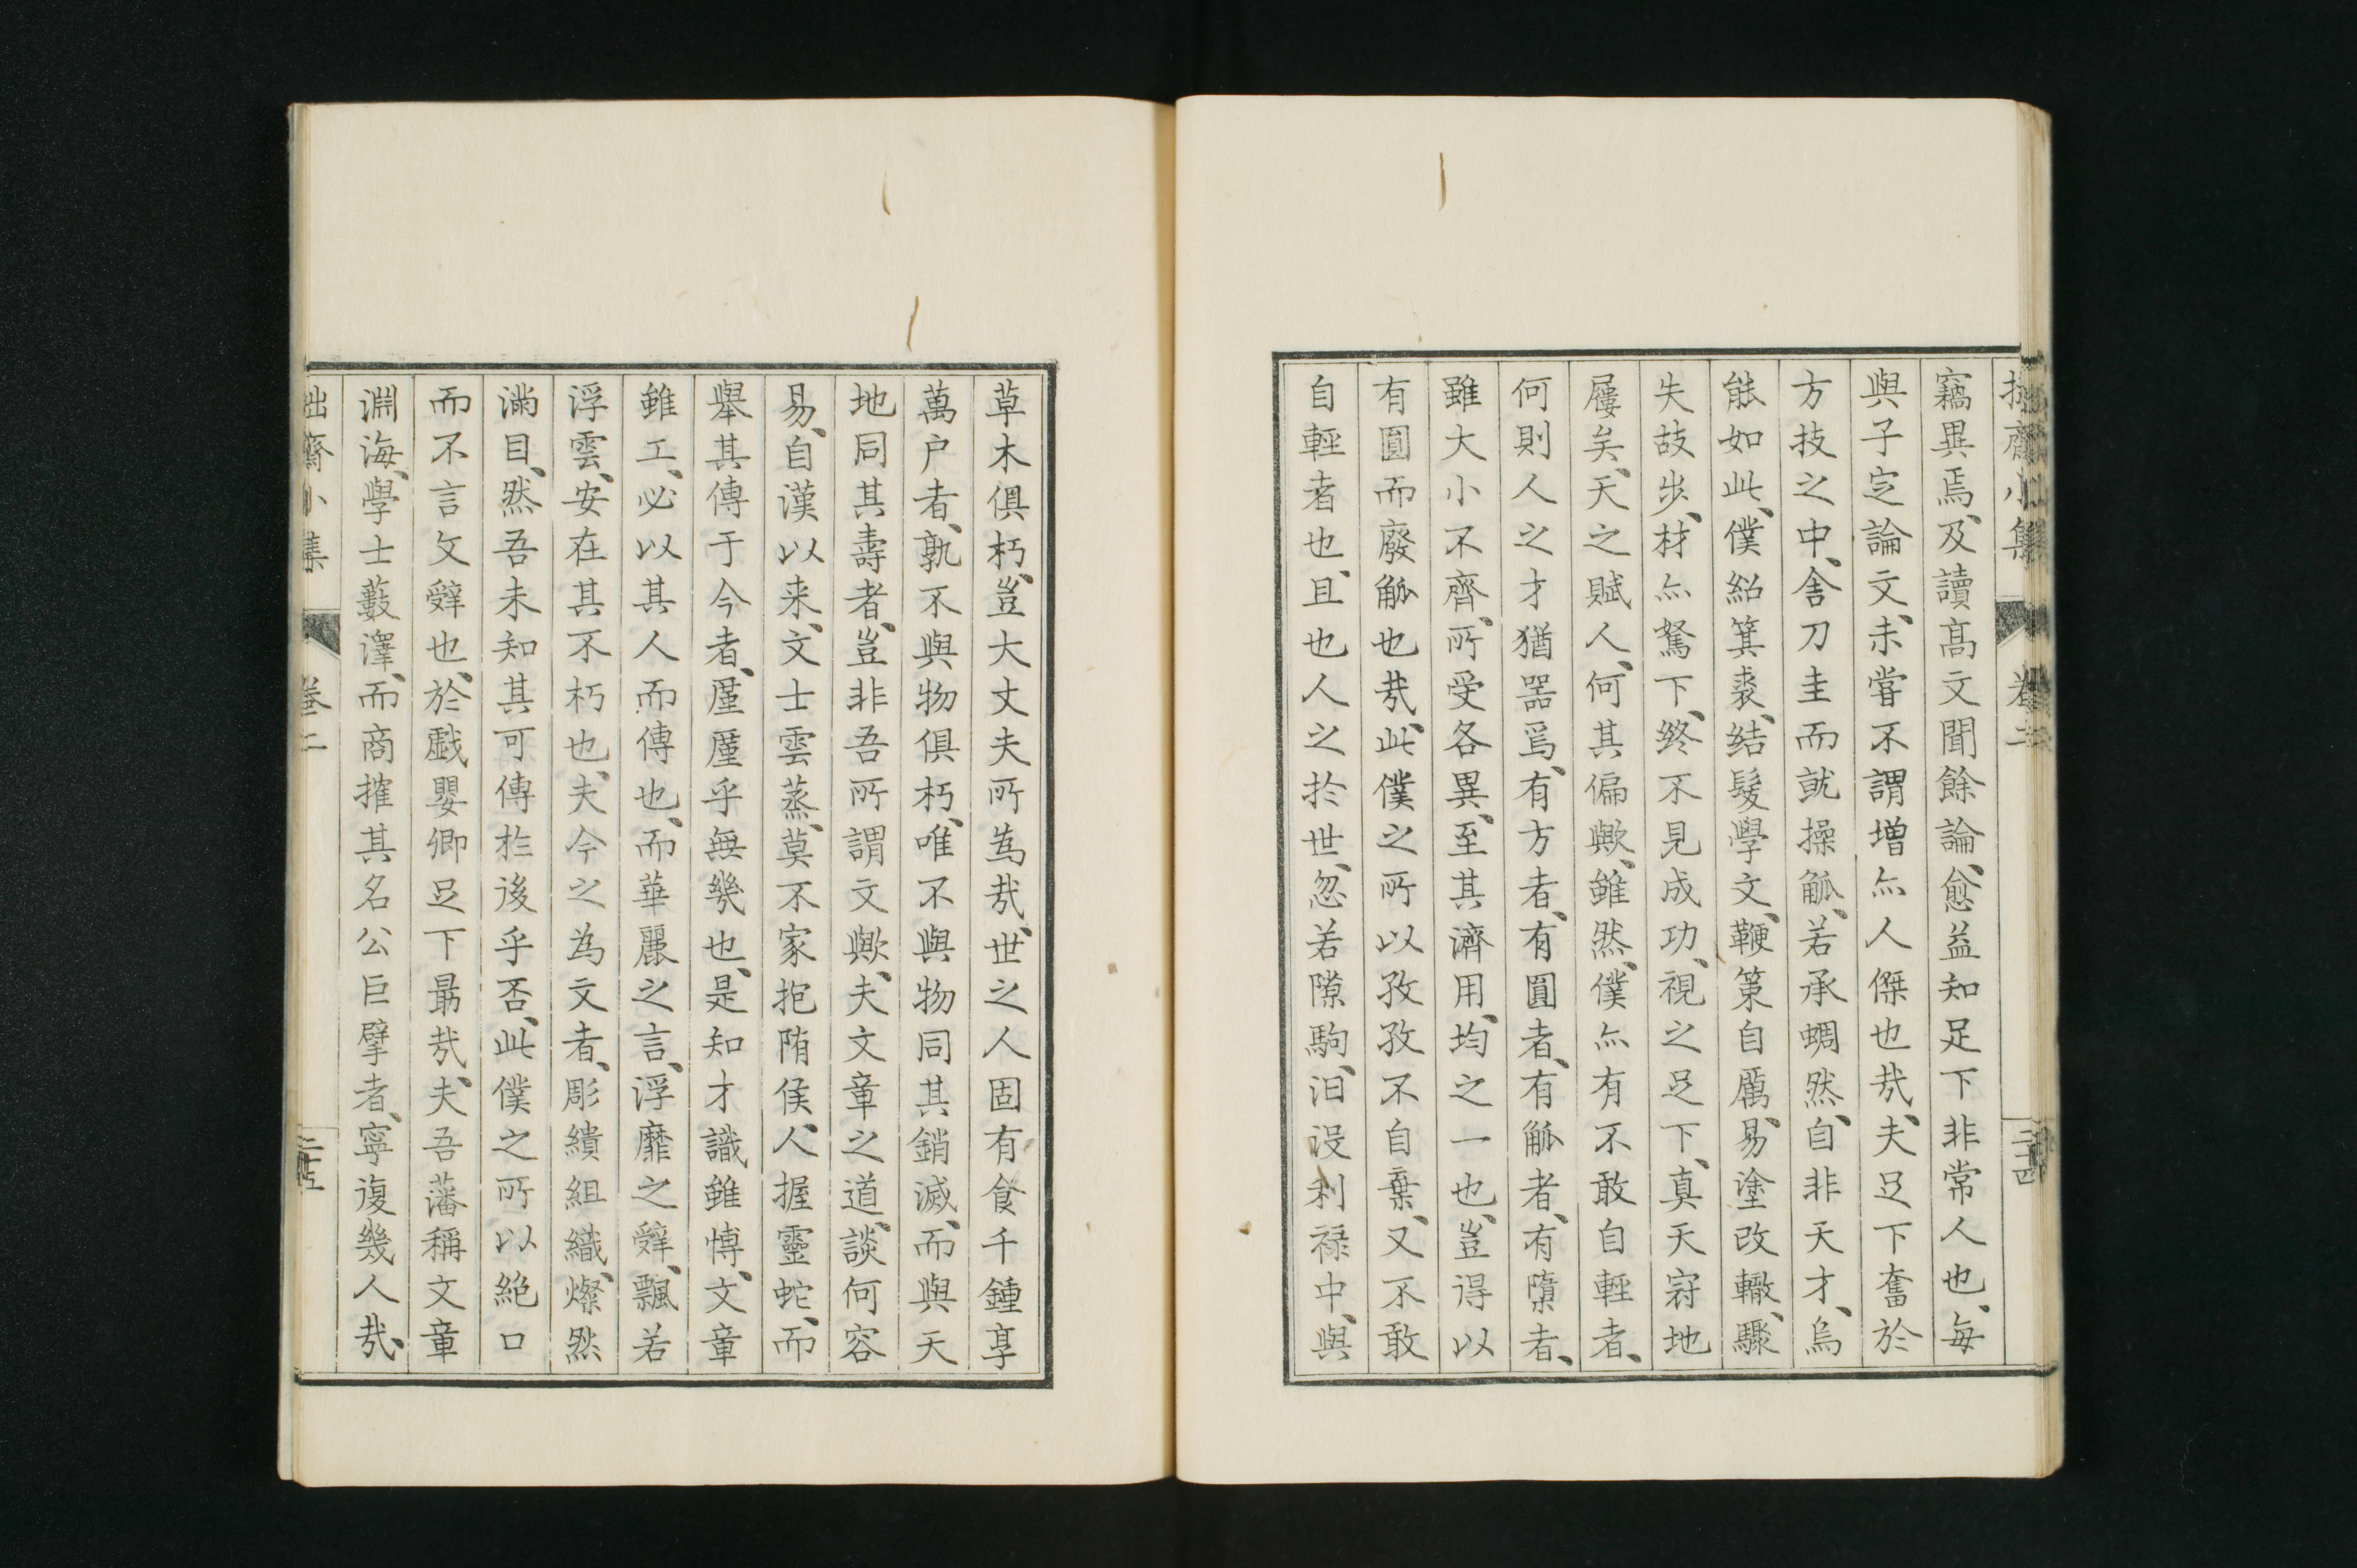 拙齋小集 卷二 二十四
竊異焉、及讀髙文聞餘論、愈益知足下非常人也、每
與子定論文、未嘗不謂増亦人傑也哉、夫足下奮於
方技之中、舍刀圭而就操觚、若承蜩然、自非天才、烏
能如此、僕紹箕裘、結髮學文、鞭策自厲、易塗改轍、驟
失故步、材亦駑下、終不見成功、視之足下、真天冠地
屨矣、天之賦人、何其偏歟、雖然、僕亦有不敢自輕者、
何則人之才猶器焉、有方者、有圓者、有觚者、有隳者、
雖大小不齊、所受各異、至其濟用、均之一也、豈得以
有圓而廢觚也哉、此僕之所以孜孜不自棄、又不敢
自輕者也、且也人之於世、忽若隙駒、汩没利禄中、與
草木俱朽、豈大丈夫所為哉、世之人固有食千鍾享
萬户者、孰不與物俱朽、唯不與物同其銷滅、而與天
地同其壽者、豈非吾所謂文歟、夫文章之道、談何容
易、自漢以来、文士雲蒸、莫不家抱隋侯、人握靈蛇、而
舉其傳于今者、厪厪乎無幾也、是知才識雖博、文章
雖工、必以其人而傳也、而華麗之言、浮靡之辭、飄若
浮雲、安在其不朽也、夫今之為文者、彫繢組織、燦然
滿目、然吾未知其可傳於後乎否、此僕之所以絶口
而不言文辭也、於戯嬰卿足下勗哉、夫吾藩稱文章
淵海、學士藪澤、而商搉其名公巨擘者、寧復幾人哉、
拙齋小集 卷二 二十五